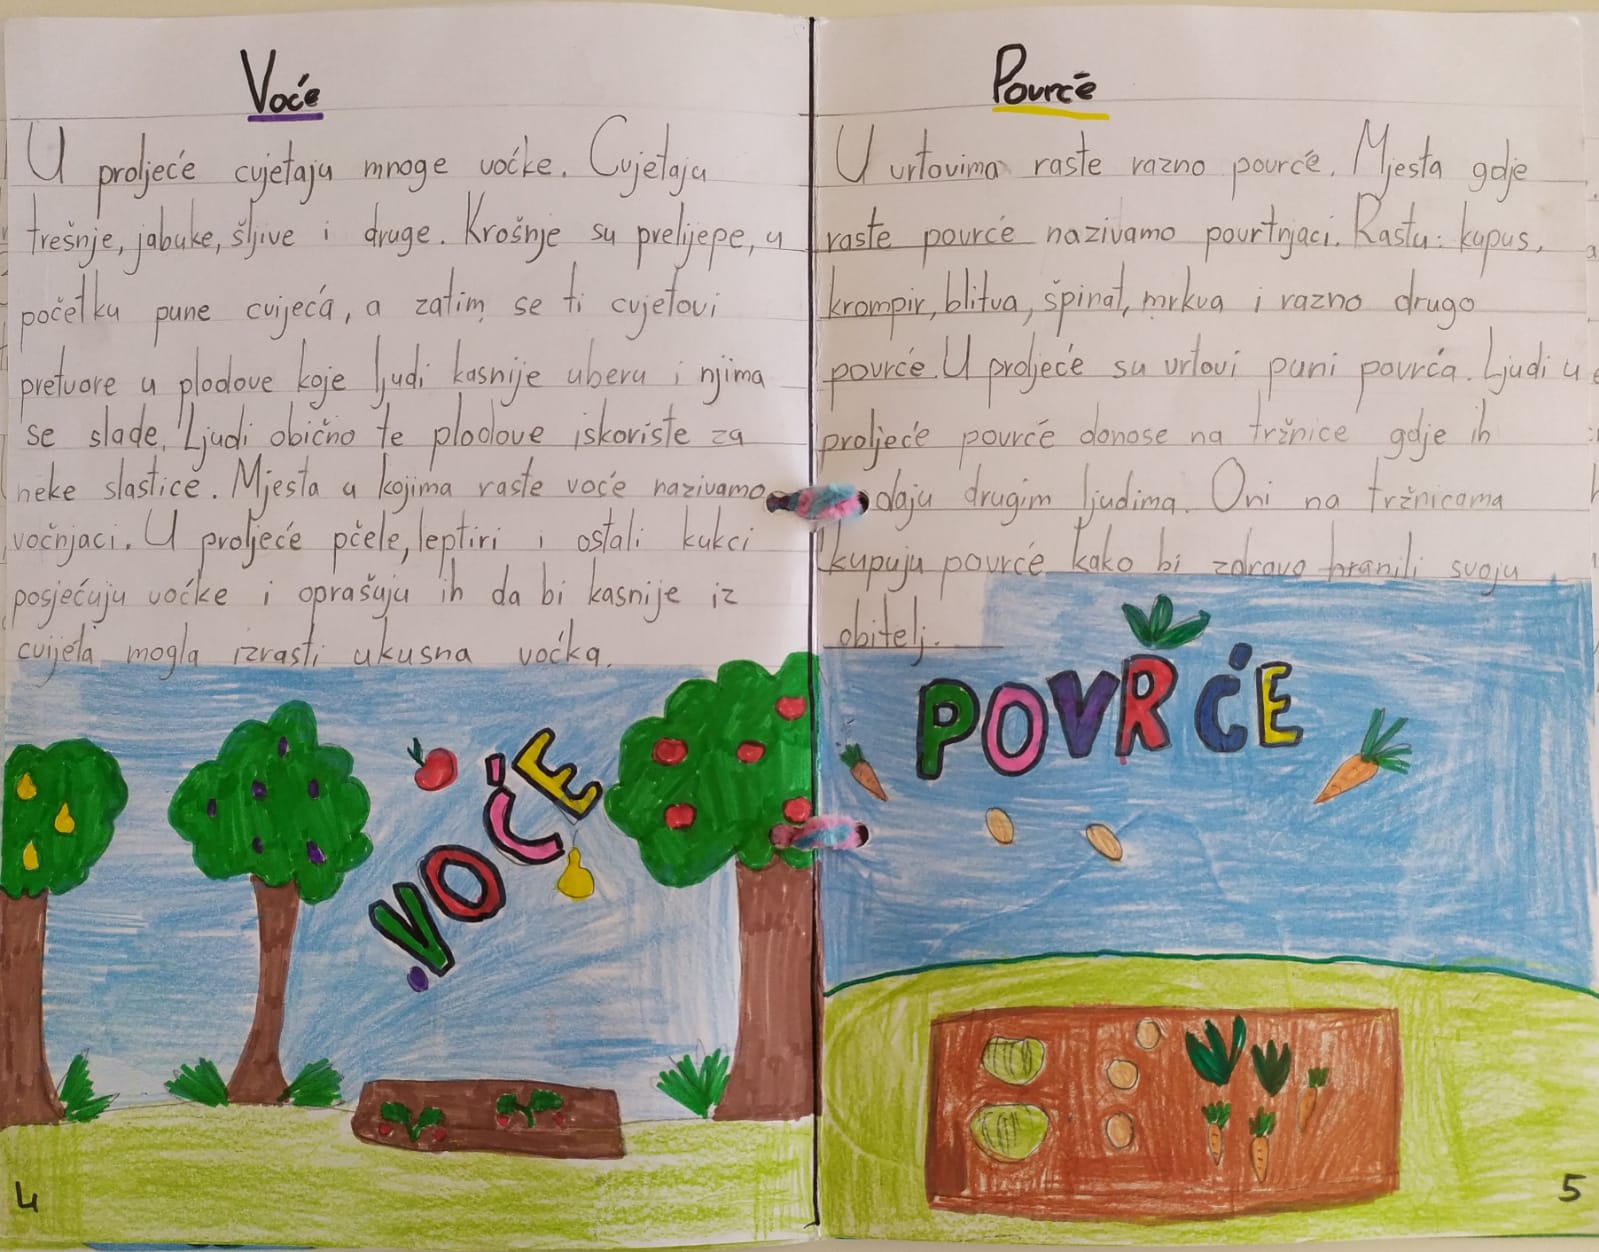 Voće
U proljeće cvjetaju mnoge voćke. Cvjetaju
trešnje, jabuke, šljive i druge. Krošnje su prelijepe, u
početku pune cvijeća, a zatim se ti cvjetovi
pretvore u plodove koje ljudi kasnije uberu i njima
se slade. Ljudi obično te plodove iskoriste za
neke slastice. Mjesta u kojima raste voće nazivamo
voćnjaci. U proljeće pčele, leptiri i ostali kukci
posjećuju voćke i oprašuju ih da bi kasnije iz
cvijeta mogla izrasti ukusna voćka.
VOĆE
4
Povrće
U vrtovima raste razno povrće. Mjesta gdje
raste povrće nazivamo povrtnjaci. Rastu: kupus,
krompir, blitva, špinat, mrkva i razno drugo
povrće. U proljeće su vrtovi puni povrća. Ljudi u
proljeće povrće donose na tržnice gdje ih
daju drugim ljudima. Oni na tržnicama
kupuju povrće kako bi zdravo hranili svoju
obitelj.
POVRĆE
5